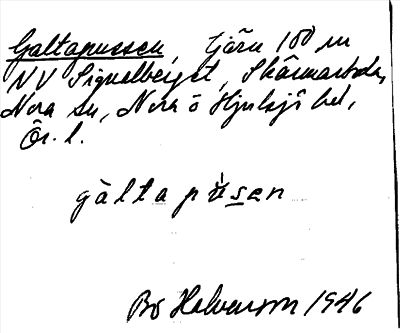 Galtapussen, tjärn 100 m
NV Signalberget, Skärmarboda,
Nora sn, Nora o Hjulsjö bel,
Ör. l.
gàltapu̇sen
Bo Halvarson 1946